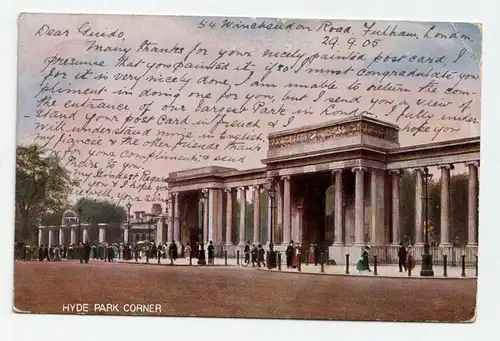 54 Winchendon Road, Fulham, London
29.9.05
Dear Guido,
Many thanks for your nicely painted post card, I
presume that you painted it; if so I must congratulate you
for it is very nicely done, I am unable to return the com-
pliment in doing one for you, but I send you a view of
the entrance of our largest Park in London. I fully under-
stand your post card in french & I hope you
will understand mine in English.
My fiancée & the other friends thank
you for your compliments & send
theirs to you
my kindest Regards
to you I hope
HYDE PARK CORNER